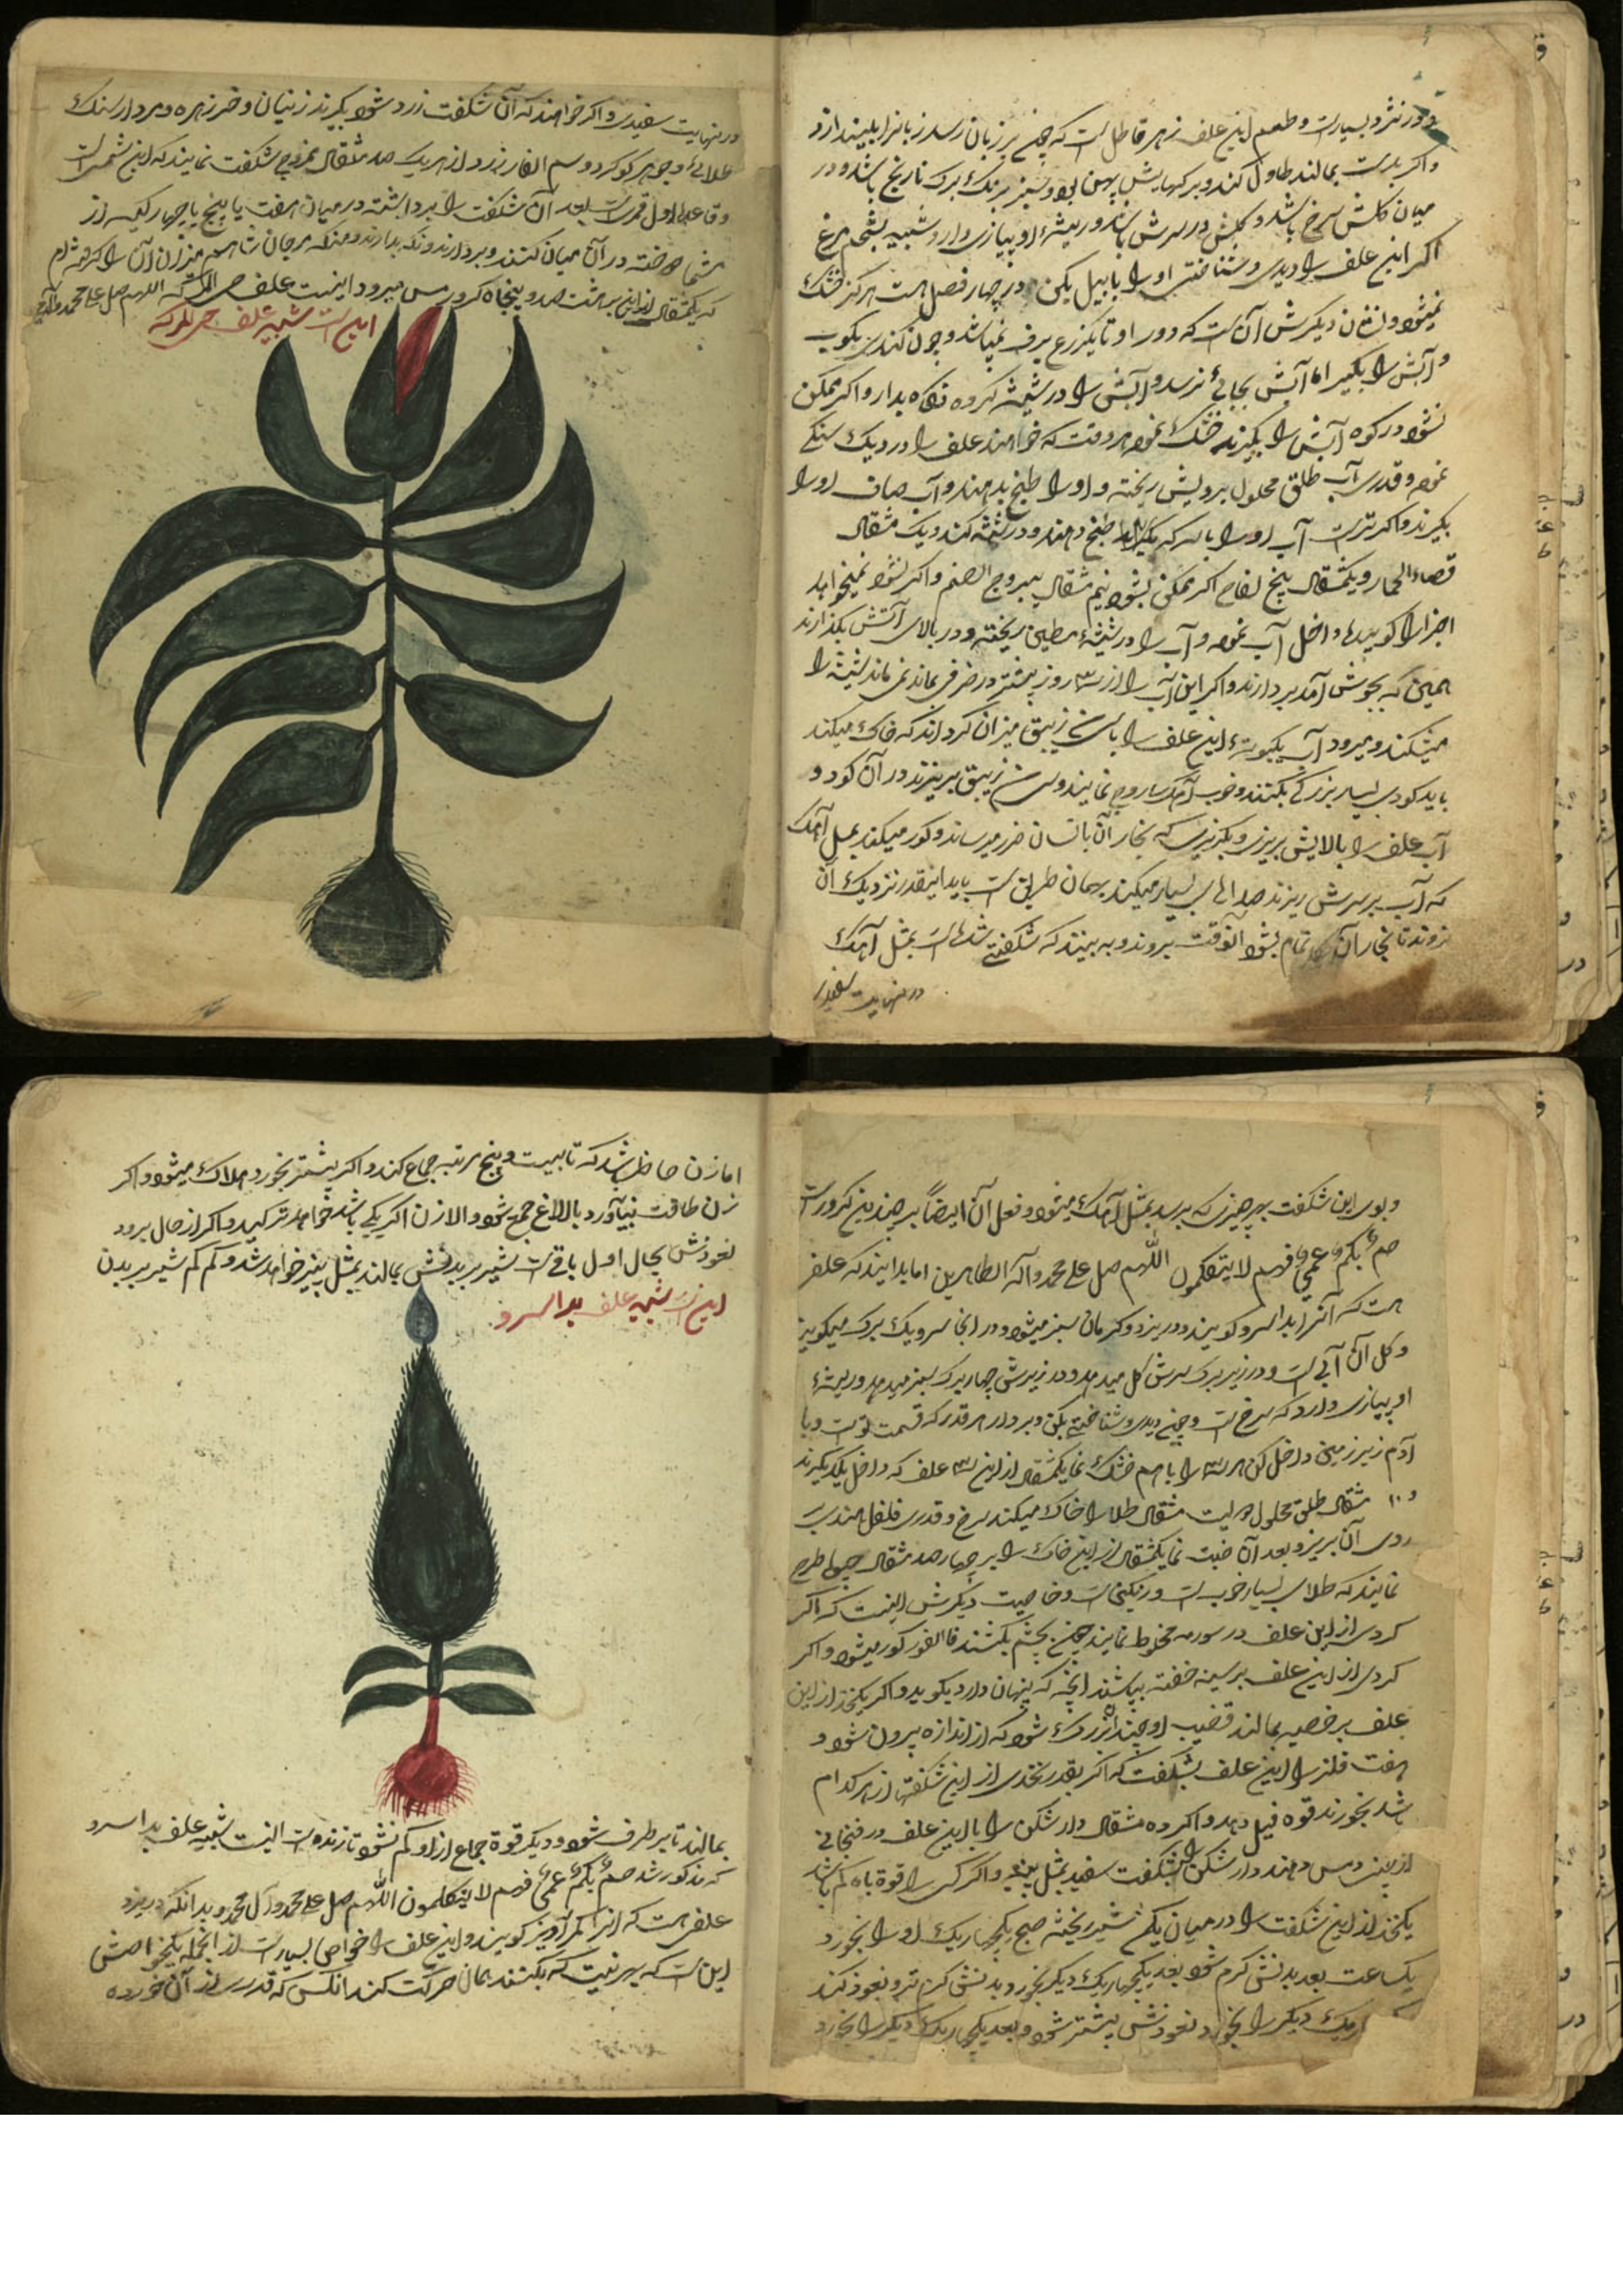 و در نزد بسیارست و طعم این علف زهر قاتل است که چون بر زبان رسد زبانرا بلیندازد
واکر بدست بمالند طاول کند و برکهایش پهن بود و سبز برنک برک نارنج باشد و در
میان کلش سرخ باشد و کلش در سرش باشد و ریشه او پیازی دارد شبیه بتخم مرغ
اکر این علف را دیدی و شناختی او را با بیل بکن در چهار فصل هست هرکز خشک
نمیشود و نشان دیکرش آن است که دور او تا یکزرع برف نمیباشد و چون کندی بکوب
و آبش را بکیر اما آبش بجائی نرسد و آبش را در شیشه کرده نکاه بدار و اکر ممکن
نشود در کوه آبش را بکیرند خشک نموده هر وقت که خواهند علف را در دیک سنکی
نموده و قدری آب طلق محلول برویش ریخته و او را طبخ بدهند و آب صاف او را
بکیرند و اکر ترست آب او را با سرکه طبخ دهند و در شیشه کند و یک مثقال
قصاءالحمار و یکمثقال بیخ لفاح اکر ممکن بشود نیم مثقال یبروج الصنم و اکر نشود نمیخواهد
اجزا را کوبیده داخل آب نموده و آب را در شیشه مطین ریخته و در بالای آتش بکذارند
همین که بجوش آمد بردارند و اکر این آب را از سه روز بیشتر در ظرفی بماند نمی ماند شیشه را
میشکند و میرود آب یکبوته این علف را با زیبق میزان کرده اند که خاک میکند
باید کودی بسیار بزرک بکنند و خوب آهک ساروج نمایند و زیبق بریزند در آن کود و
آب علف را بالایش بریزی و بکریزی که بخار آن بانسان ضرر میرساند و کور میکند بمثل آهک
که آب بر سرش ریزند صدائی بسیار میکند بهمان طریق است باید اینقدر نزدیک آن
نروند تا بخار آن تمام بشود آنوقت بروند و ببینند که شکفته شده است بمثل آهک
در نهایت سفیدی
در نهایت سفیدی و اکر خواهند که آن شکفت زرد شود بکیرند زنیان و خرزهره و مردارسنک
طلائی و جوهر کوکرد و سم الفار زرد از هریک صد مثقال ممزوج شکفت نمایند که این شمس است
و قاعده اول قمر است بعد آن شکفت را برداشته در میان هفت یا پنج یا چهار رکیه از
شما ساخته در آن میان کنند و بردارند و نکه بدارند
که یکمثقال از این بهشت صد و پنجاه کرور مس میرود اینست علف اللهم صل علی محمد و آل محمد
این است شبیه علف
و بوی این شکفت بهر چیزی که برسد بمثل آهک میشود و فعل آن ایضاً بر چندین کرورست
صم بکم عمی فهم لا یتفکمون اللهم صل علی محمد و آله الطاهرین اما بدانید که علفی
هست که آنرا بداسرو کویند و در یزد و کرمان سبز میشود و در انجا سرو یک برک میکویند
و کل آن آبی است و در زیر برک سرش کل میدهد و در زیرش چهار برک سبز میدهد و ریشه
او پیازی دارد که سرخ است و چون دیدی و شناختی بکن و بردار هر قدر که قسمت تو است و با
آدم زیر زمین داخل کن هر سه را با هم خشک نما یکمثقال از این سه علف که داخل یکدیکرند
و ۱۰ مثقال طلق محلول دویست مثقال طلا را خاک میکند سرخ و قدری فلفل هند
روی آن بریز و بعد آن ضبت نما یکمثقال از این خاک را بر چهار صد مثقال جیوا طرح
نمایند که طلای بسیار خوب است و رنکین است و خاصیت دیکرش اینست که اکر
کردی از این علف در سورمه مخلوط نمایند چون بچشم بکشند فی الفور کور میشود و اکر
کردی از این علف بر سینه خفته بپاشند آنچه که پنهان دارد بکوید و اکر یکنخد از این
علف بر خصیه بمالند قضیب او چندان بزرک شود که از اندازه بیرون شود و
هفت فلز را این علف بشکفت که اکر بقدر نخدی از این شکفتها از هر کدام
باشد بخورند قوه فیل دهد و اکر ده مثقال دار شکن را با این علف در فنجانی
از چینی و مس دهند دار شکن را بشکفت سفید بمثل پنبه و اکر کسی را قوه باه کم باشد
یکنخد از این شکفت را در میان یکمن شیر ریخته صبح یکچهاریک او را بخورد
یکساعت بعد بدنش کرم شود بعد یکچهاریک دیکر بخورد بدنش کرم تر و نعوذ کند
دیکر را بخورد نعوذش بیشتر شود و بعد یکچهاریک دیکر را بخورد
اما زن حاظر باشد که تا بیست و پنج مرتبه جماع کند و اکر بیشتر بخورد هلاک میشود و اکر
زن طاقت نیاورد بالاغ جمع شود و الا زن اکر یکی باشد خواهد ترکید و اکر از حال برود
نعوذش بحال اول باقی است شیر بر بدنش بمالند بمثل پنیر خواهد شد و کم کم شیر بر بدن
این است شبیه علف بداسرو
بمالند تا برطرف شود و دیکر قوة جماع از او کم نشود تا زنده است اینست شبیه علف بداسرو
که مذکور شد صم بکم عمی فهم لا یتکلمون اللهم صل علی محمد و آل محمد و بدانکه در یزد
علفی هست که انرا کمرآویز کویند و این علف را خواص بسیار است از انجمله یکخواصش
این است که بهر نیت که بکنند بهمان حرکت کند انکس که قدری از آن خورده